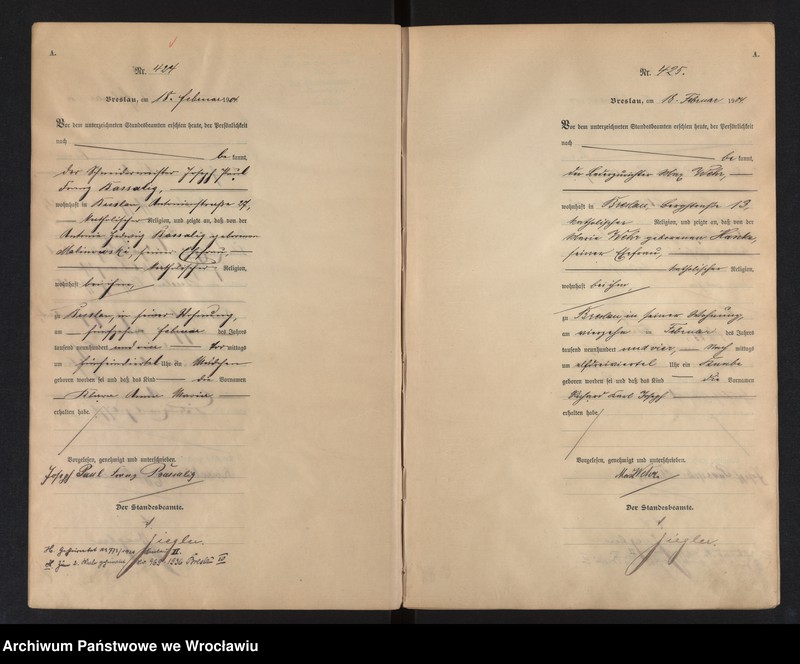 A.
Nr. 424
Breslau, am 18. Februar 1904.
Vor dem unterzeichneten Standesbeamten erschien heute, der Persönlichkeit
nach
be kannt,
der Schneidermeister Joseph Paul
Franz
wohnhaft in Breslau,
katholischer Religion, und zeigte an, daß von der
geborenen
seiner Ehefrau,
katholischer Religion,
wohnhaft bei ihm,
zu Breslau, in seiner Wohnung,
am fünfzehn Februar des Jahres
tausend neunhundert und vier, Vor mittags
um Uhr ein Mädchen
geboren worden sei und daß das Kind die Vornamen
Klara Anna Maria
erhalten habe.
Vorgelesen, genehmigt und unterschrieben.
Joseph Paul Franz
Der Standesbeamte.
Ziegler.
A.
Nr. 425.
Breslau, am 18. Februar 1904.
Vor dem unterzeichneten Standesbeamten erschien heute, der Persönlichkeit
nach
be kannt,
der Max Wehr,
wohnhaft in Breslau, Bergstraße 13,
katholischer Religion, und zeigte an, daß von der
Maria Wehr geborenen Hanke,
seiner Ehefrau,
katholischer Religion,
wohnhaft bei ihm,
zu Breslau, in seiner Wohnung,
am vierzehn Februar des Jahres
tausend neunhundert und vier, Nach mittags
um elfdreiviertel Uhr ein Knabe
geboren worden sei und daß das Kind die Vornamen
Richard Karl Joseph
erhalten habe.
Vorgelesen, genehmigt und unterschrieben.
Max Wehr.
Der Standesbeamte.
Ziegler.
Archiwum Państwowe we Wrocławiu